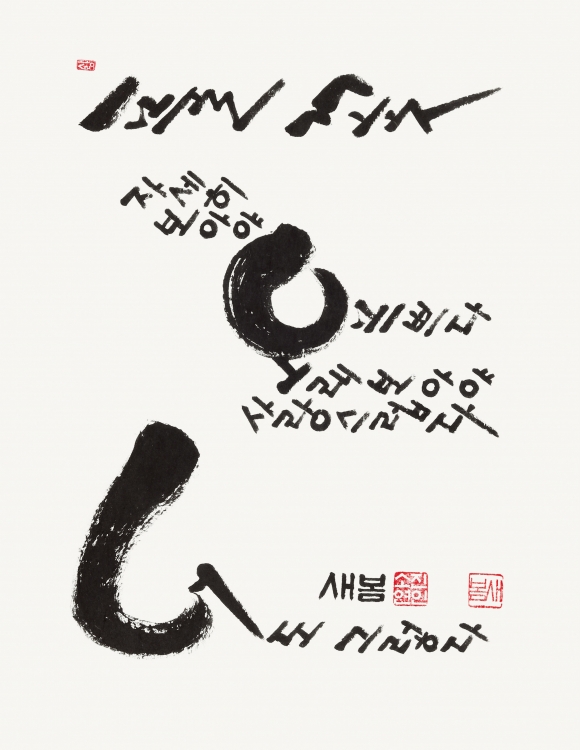 자세히
보아야
예쁘다
오래 보아야
사랑스럽다
새봄
새봄
너도 그렇다